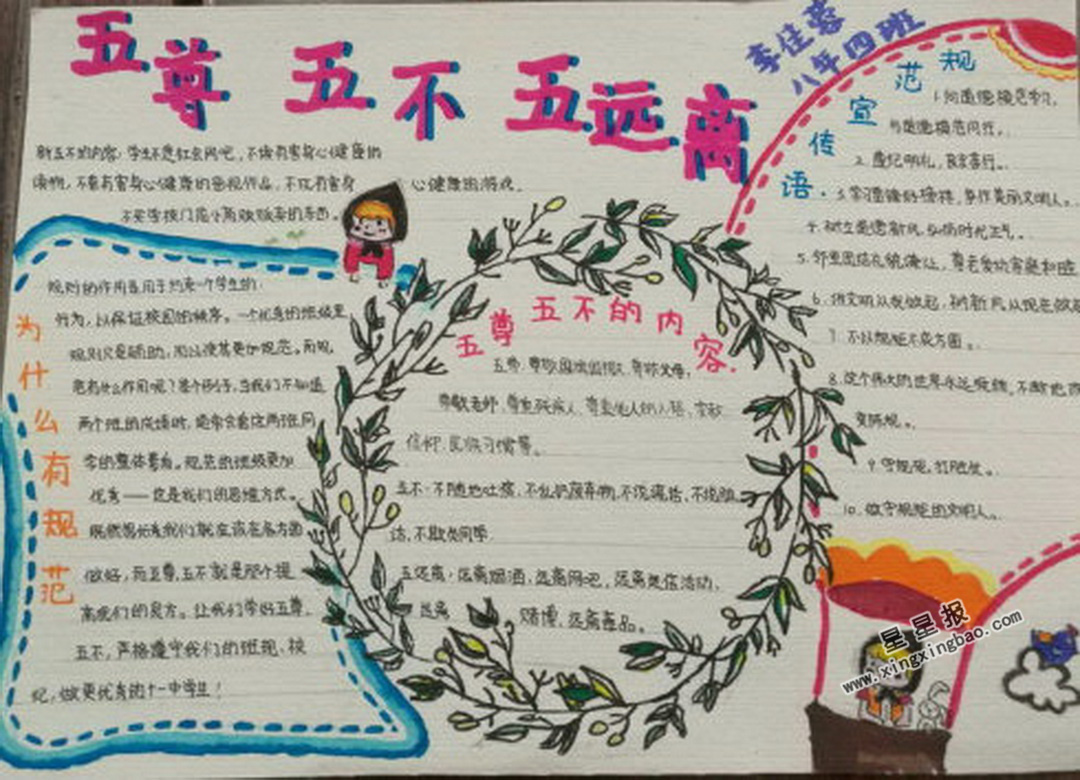 五尊 五不 五远离
李佳蓉
八年四班
新五不的内容:学生不进社会网吧,不读有害身心健康的
读物,不看有害身心健康的影视作品,不玩有害身心健康的游戏。
不买学校门前小商贩贩卖的东西。
为什么有规范
规则的作用是用于约束一个学生的
行为,以保证校园的秩序。一个优秀的班级里
规则只是辅助,用以使其更加规范。而规
范有什么作用呢?举个例子,当我们不知道
两个班的成绩时,通常会看这两班同
学的整体素质。规范的班级更加
优秀——这是我们的思维方式。
既然想优秀我们就应该在各方面
做好,而五尊五不就是那个提
高我们的良方。让我们学好五尊、
五不,严格遵守我们的班规、校
纪,做更优秀的十一中学生!
五尊五不的内容.
五尊:尊敬国旗国徽,尊敬父母,
尊敬老师,尊重残疾人,尊重他人的人格、宗教
信仰、民族习惯等。
五不:不随地吐痰,不乱扔废弃物,不说谎话,不说脏
话,不欺负同学
五远离:远离烟酒,远离网吧,远离迷信活动,
远离 赌博,远离毒品。
规范宣传语.
1.向道德模范学习,
与道德模范同行。
2.遵纪明礼,良言善行。
3.学习道德好榜样,争作美丽文明人。
4.树立道德新风,弘扬时代正气。
5.邻里团结礼貌谦让,尊老爱幼家庭和睦
6.做文明从我做起,树新风从现在做起
7.不以规矩不成方圆。
8.
变陈规。
9.守规规,打胜仗。
10.做守规矩的文明人。
星星报
www.xingxingbao.com